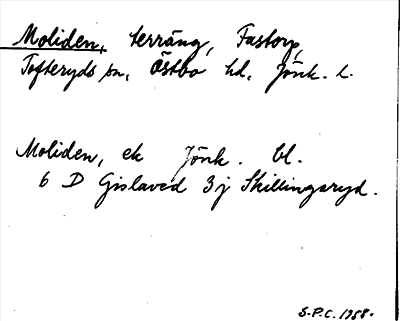 Moliden, terräng, Fastorp,
Tofteryds sn, Östbo hd, Jönk. l.
Moliden, ek Jönk. bl.
6 D Gislaved 3j Skillingaryd.
S.P.C. 1958.